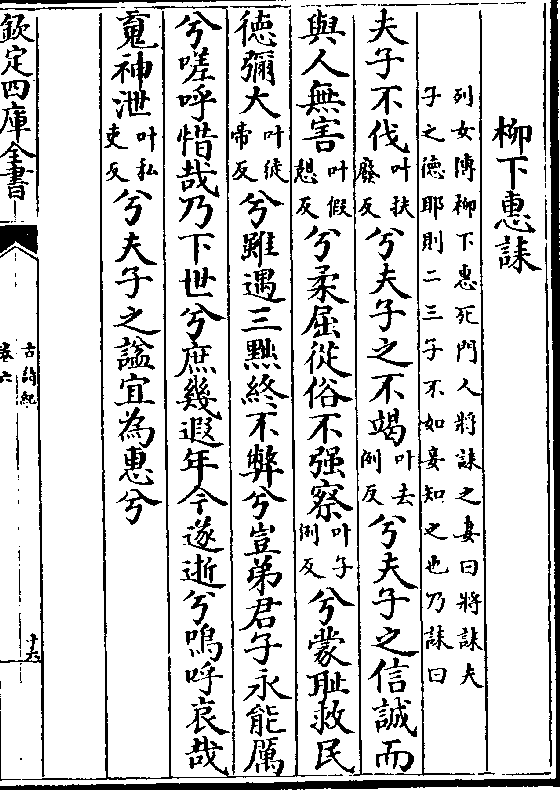 柳下惠誄
列女傳柳下惠死門人將誄之妻曰將誄夫
子之德耶則二三子不如妾知之也乃誄曰
夫子不伐叶扶廢反兮夫子之不竭叶去例反兮夫子之信誠而
與人無害叶假憩反兮柔屈從俗不强察叶子例反兮蒙耻救民
德彌大叶徒帝反兮雖遇三黜終不弊兮豈弟君子永能厲
兮嗟呼惜哉乃下世兮庶幾遐年今遂逝兮嗚呼哀哉
䰟神泄叶私吏反兮夫子之諡宜為惠兮
欽定四庫全書
古詩紀
卷六
十六